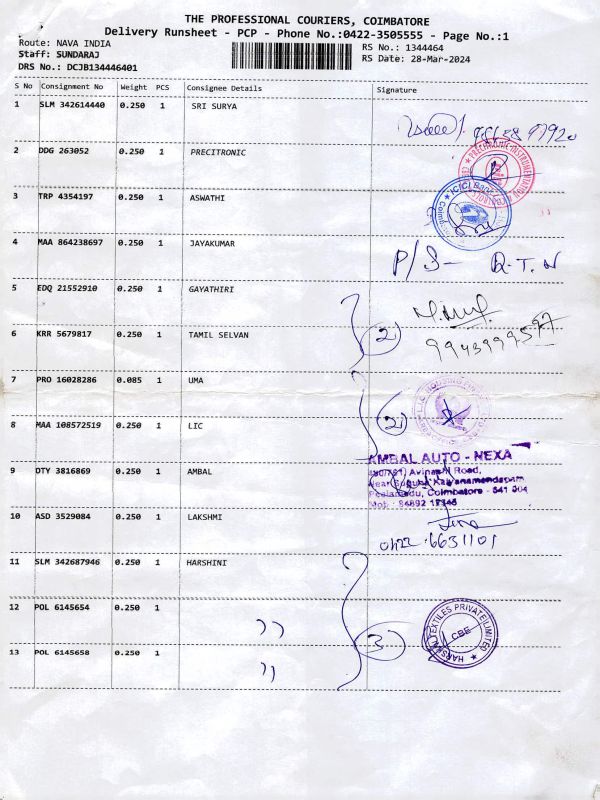 THE PROFESSIONAL COURIERS, COIMBATORE
Delivery Runsheet - PCP - Phone No.:0422-3505555 - Page No.:1
Route: NAVA INDIA
Staff: SUNDARAJ
DRS No.: DCJB134446401
RS No.: 1344464
RS Date: 28-Mar-2024
S No Consignment No Weight PCS Consignee Details Signature
1 SLM 342614440 0.250 1 SRI SURYA
2 DDG 263052 0.250 1 PRECITRONIC
3 TRP 4354197 0.250 1 ASWATHI
4 MAA 864238697 0.250 1 JAYAKUMAR
P/S- R.T.N
5 EDQ 21552910 0.250 1 GAYATHIRI
6 KRR 5679817 0.250 1 TAMIL SELVAN
2
7 PRO 16028286 0.085 1 UMA
8 MAA 108572519 0.250 1 LIC
2
AMBAL AUTO - NEXA
Avinashi Road,
Coimbatore - 641 004
9 DTY 3816869 0.250 1 AMBAL
10 ASD 3529084 0.250 1 LAKSHMI
0422-6631101
11 SLM 342687946 0.250 1 HARSHINI
12 POL 6145654 0.250 1 ,,
3
TEXTILES PRIVATE LIMITED
CBE
13 POL 6145658 0.250 1 ,,